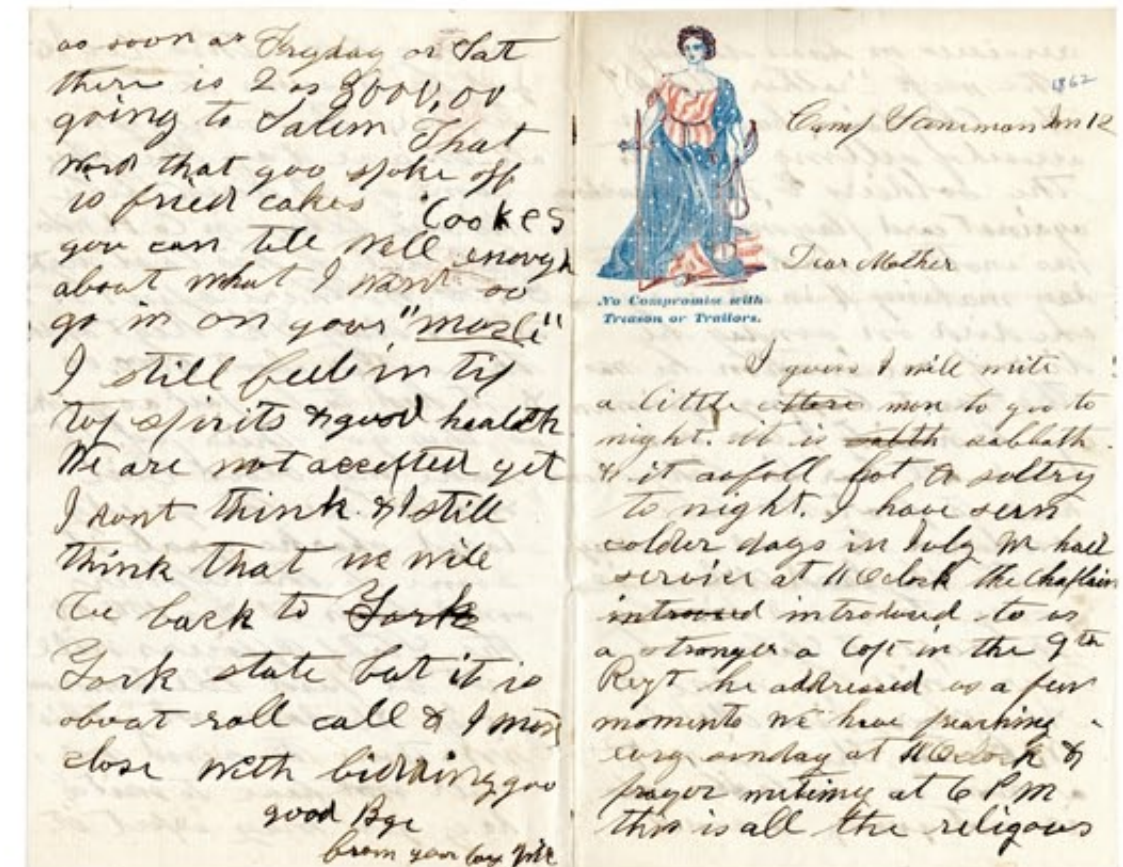 as soon as Fryday or Satt
there is 2 or 3000,00
going to Salem That
word that yoo spoke off
is fried cakes Cookes
you can tell well enough
about what I want oo
go in on your "muscle"
I still feel in tip
top spirits & good heealth
We are not accepted yet
I dont think & I still
think that we will
be back to York
York state but it is
about roll call & I must
close with bidding yoo
good Bye
from your boy
1862
Camp Jan 12
Dear Mother
No Compromise with
Treason or Traitors.
I guess I will write
a little more to yoo to
night. it is sabbath
& it hot & soltry
to night. I have seen
colder days in July We had
service at 11 Oclock the Chaplain
introduced to us
a stranger a Capt in the 9th
Regt he addressed us a few
moments we have preaching
evry sunday at 11 Oclock &
prayer meeting at 6 P M
this is all the religous